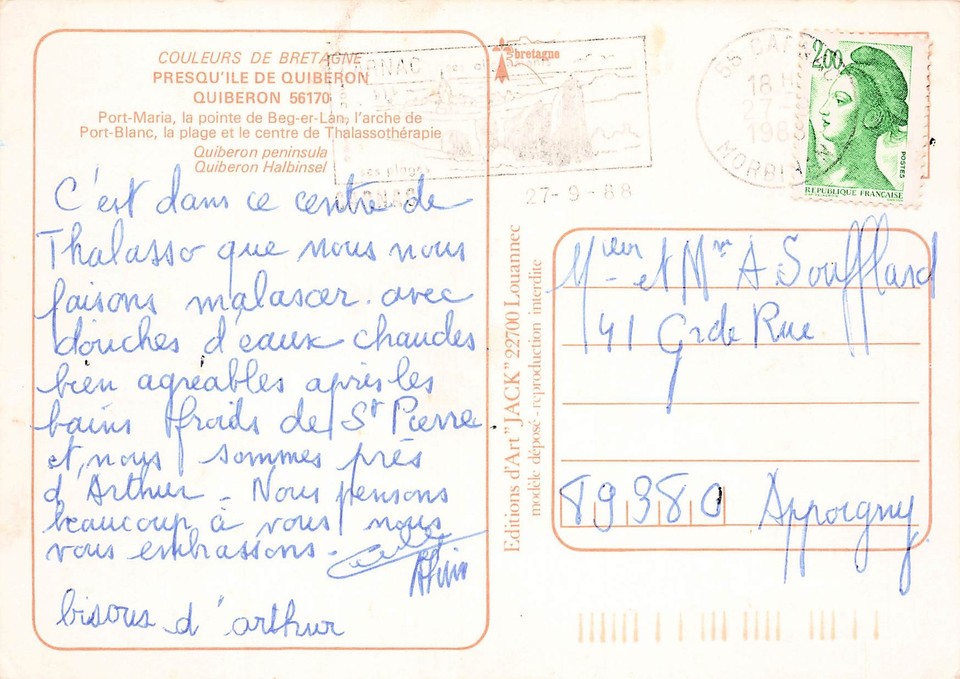 COULEURS DE BRETAGNE
PRESQU'ILE DE QUIBERON
QUIBERON 56170
Port-Maria, la pointe de Beg-er-Lan, l'arche de
Port-Blanc, la plage et le centre de Thalassothérapie
Quiberon peninsula
Quiberon Halbinsel
C'est dans ce centre de
Thalasso que nous nous
faisons malascer. avec
douches d'eaux chaudes
bien agréables après les
bains froids de St Pierre
et, nous sommes près
d'Arthur - Nous pensons
beaucoup à vous nous
vous embrassons.
bisous d'arthur
bretagne
CARNAC
ses plages
CARNAC
27-9-88
56 CARNAC
18 H
27-
1988
MORBIHAN
2,00
POSTES
REPUBLIQUE FRANÇAISE
Editions d'Art "JACK" 22700 Louannec
modèle déposé - reproduction interdite
Mr et Me A. Soufflard
41 Grde Rue
89380 Appoigny